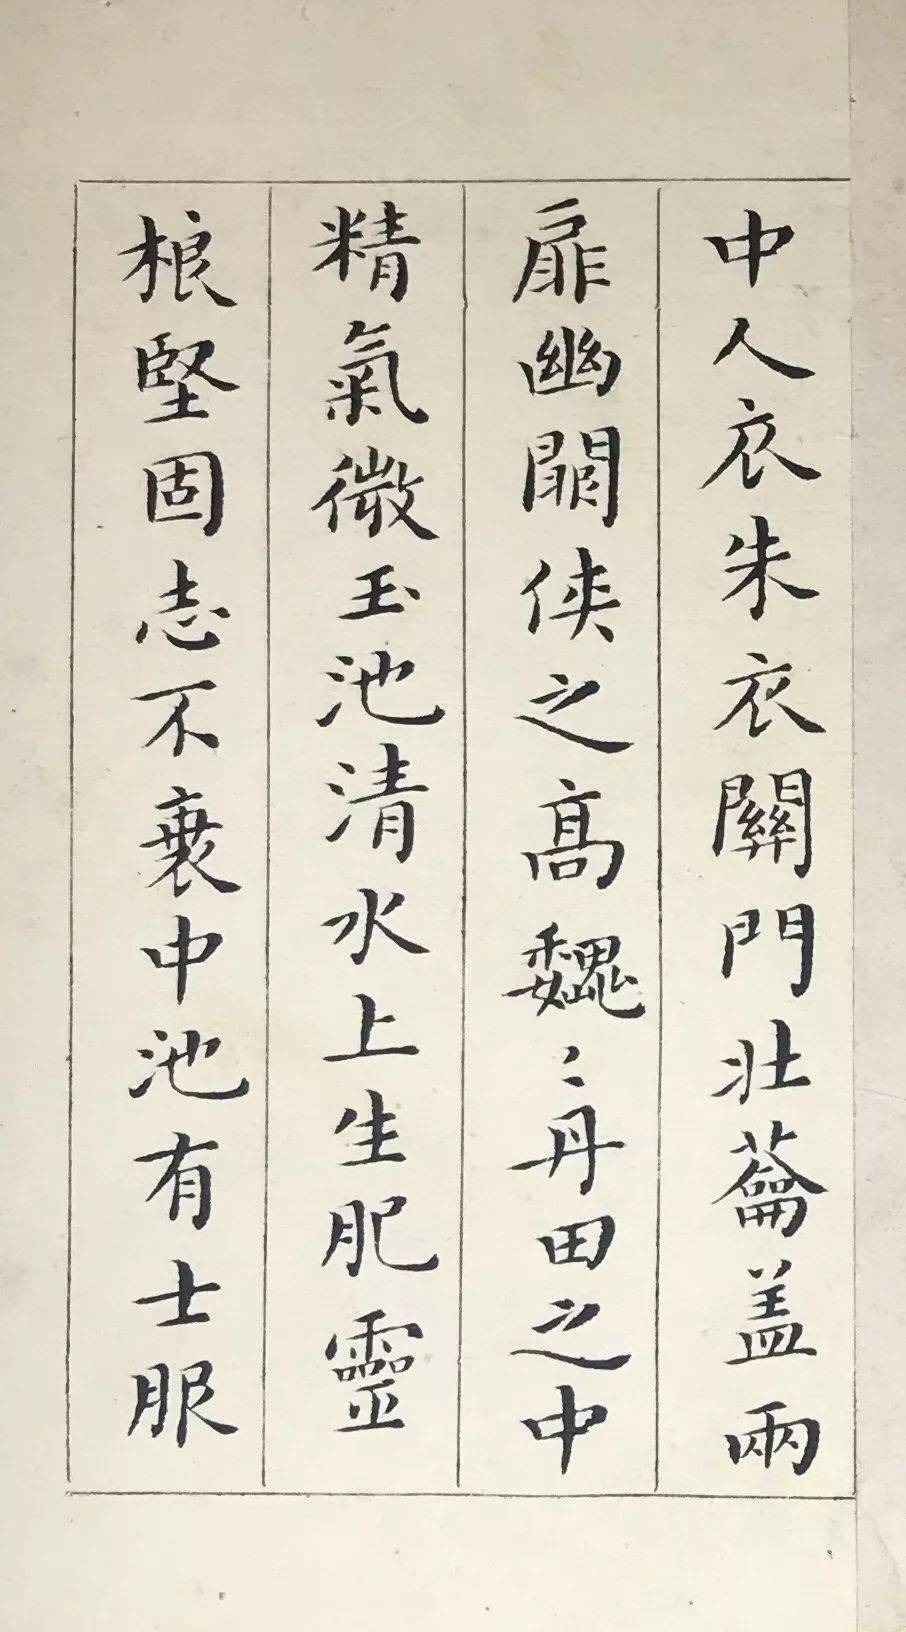 中人衣朱衣關門壯蘥盖兩
扉幽闗俠之髙魏〻丹田之中
精氣微玉池清水上生肥靈
根堅固志不衰中池有士服